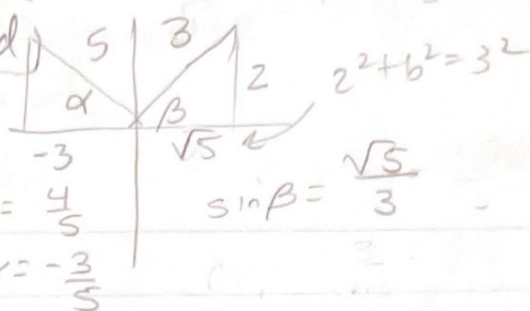 d 5 3
α β 2 2²+b²=3²
-3 √5
= 4/5 sinβ = √5/3
= -3/5